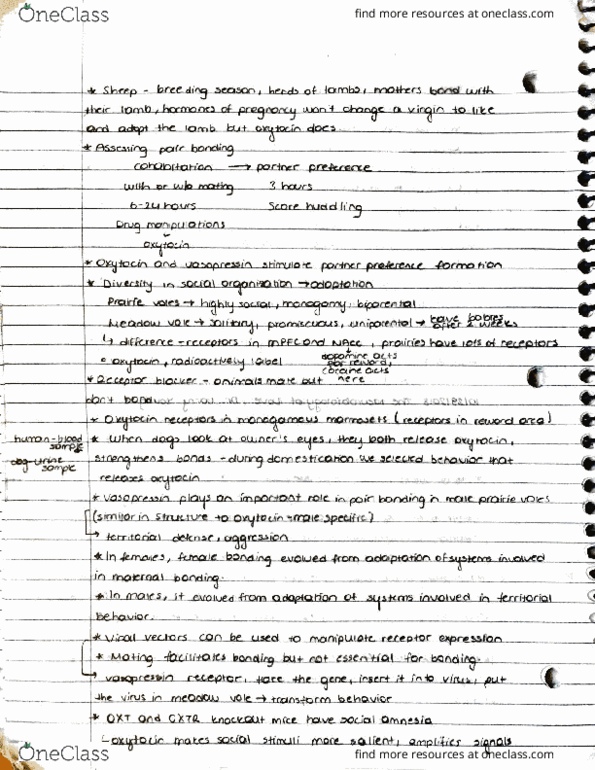 OneClass
find more resources at oneclass.com
* Sheep - breeding season, herds of lambs, mothers bond with
their lamb, hormones of pregnancy won't change a virgin to like
and adopt the lamb but oxytocin does.
* Assessing pair bonding
cohabitation → partner preference
with or w/o mating 3 hours
6-24 hours Score huddling
Drug manipulations
oxytocin
* Oxytocin and vasopressin stimulate partner preference formation
* Diversity in social organization → adaptation
Prairie voles → highly social, monogamy, biparental
Meadow vole → solitary, promiscuous, uniparental → leave babies after 2 weeks
↳ difference - receptors in mPFC and NAcc, prairies have lots of receptors
* oxytocin, radioactively label dopamine acts for reward, cocaine acts here
* Receptor blocker - animals mate but
don't bond
* Oxytocin receptors in monogamous marmosets (receptors in reward area)
human - blood sample
* When dogs look at owner's eyes, they both release oxytocin,
dog - urine sample
strengthens bonds - during domestication we selected behavior that
releases oxytocin
* Vasopressin plays an important role in pair bonding in male prairie voles
(similar in structure to oxytocin - male specific)
→ territorial defense, aggression
* In females, female bonding evolved from adaptation of systems involved
in maternal bonding.
* In males, it evolved from adaptation of systems involved in territorial
behavior.
* Viral vectors can be used to manipulate receptor expression
* Mating facilitates bonding but not essential for bonding.
→ vasopressin receptor, take the gene, insert it into virus, put
the virus in meadow vole → transform behavior
* OXT and OXTR knockout mice have social amnesia
└ oxytocin makes social stimuli more salient, amplifies signals
OneClass
find more resources at oneclass.com